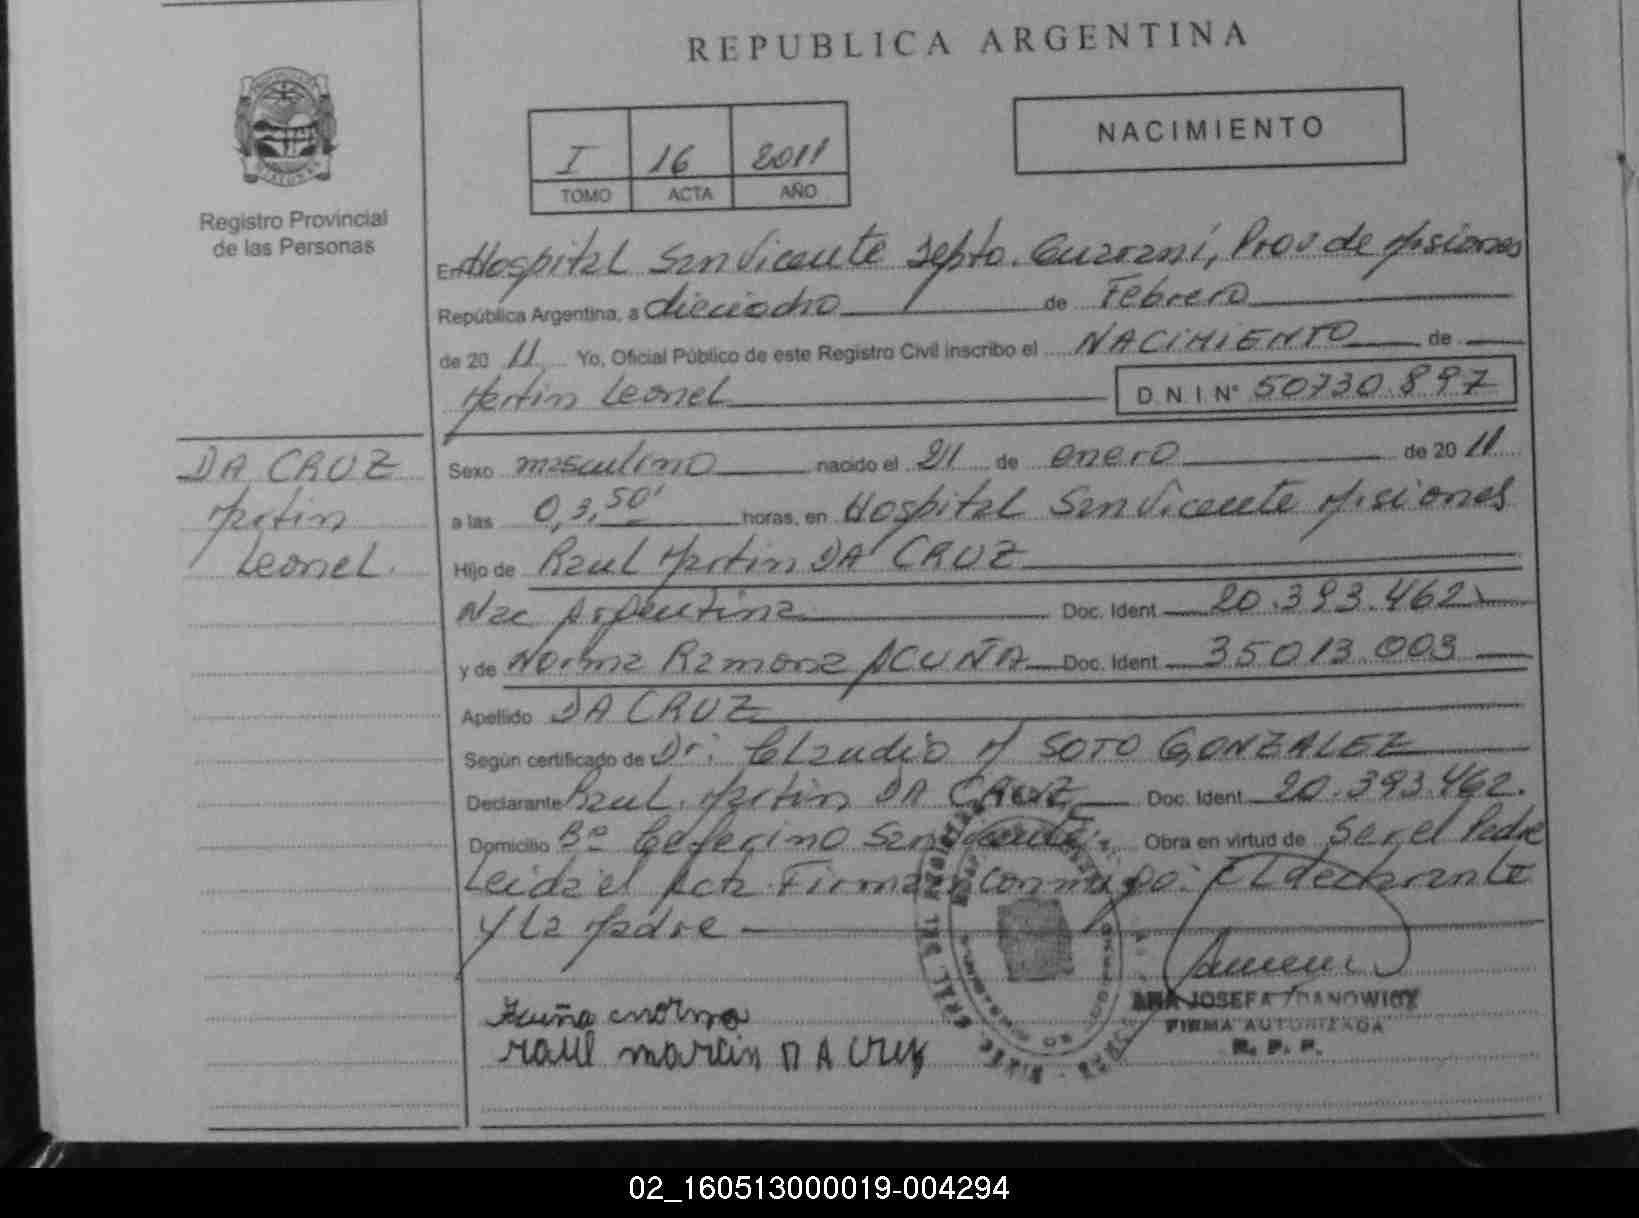 REPUBLICA ARGENTINA
I 16 2011
TOMO ACTA AÑO
NACIMIENTO
Registro Provincial
de las Personas
En Hospital San Vicente Depto. Guaraní, Prov de Misiones
República Argentina, a dieciocho de Febrero
de 2011 Yo, Oficial Público de este Registro Civil inscribo el NACIMIENTO de
Martin Leonel D.N.I.N° 50730.897
DA CRUZ
Martin
Leonel.
Sexo masculino nacido el 21 de enero de 2011
a las 0,3,50' horas, en Hospital San Vicente Misiones
Hijo de Raul Martin DA CRUZ
Nac Argentina Doc. Ident 20.393.462
y de Norma Ramona ACUÑA Doc. Ident 35013.003
Apellido DA CRUZ
Según certificado de Dr. Claudio M SOTO GONZALEZ
Declarante Raul Martin DA CRUZ Doc. Ident 20.393.462.
Domicilio Bº Ceferino San Vicente. Obra en virtud de Ser el Padre
Leida el Acta Firman conmigo: El declarante
y La Madre
Acuña norma
raul martin DA CRUZ
ANA JOSEFA ZDANOWICZ
FIRMA AUTORIZADA
R. P. P.
02_160513000019-004294